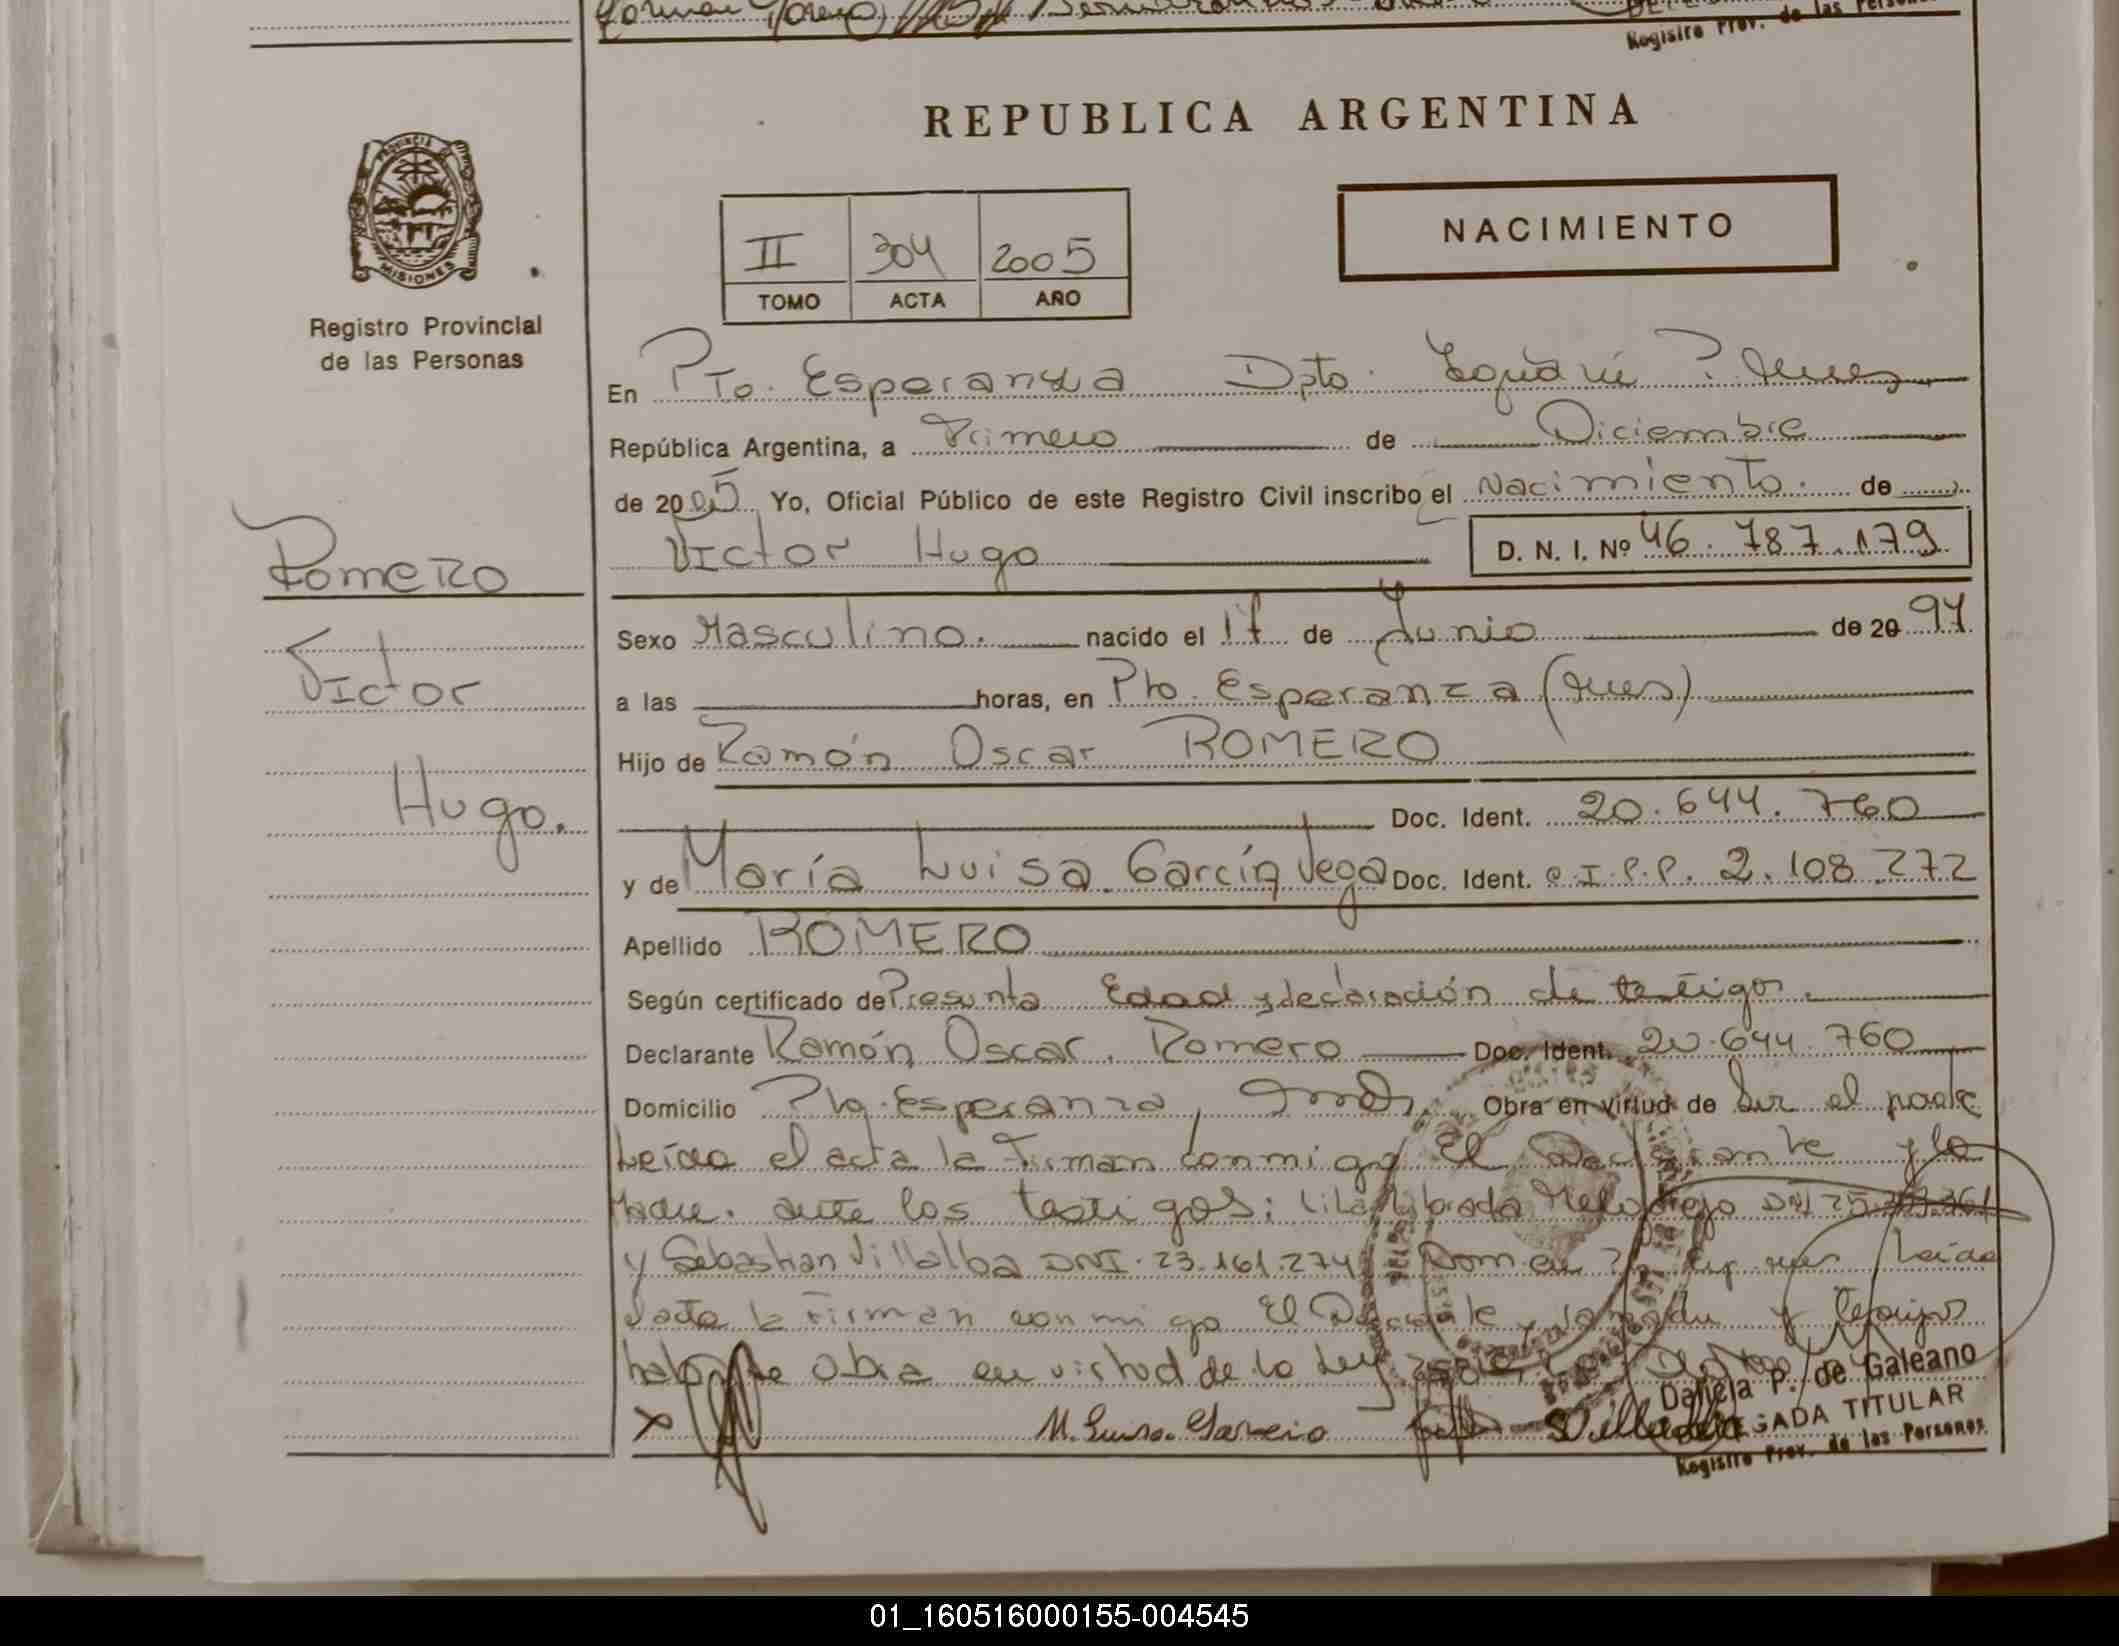 Registro Prov. de las Personas
REPUBLICA ARGENTINA
PROVINCIA DE
MISIONES
Registro Provincial
de las Personas
II 304 2005
TOMO ACTA AÑO
NACIMIENTO
En Pto. Esperanza Dpto. Iguazú
República Argentina, a Primero de Diciembre
de 2005 Yo, Oficial Público de este Registro Civil inscribo el Nacimiento. de
Victor Hugo D. N. I. Nº 46.787.179
Romero
Victor
Hugo.
Sexo Masculino. nacido el 17 de Junio de 20 94
a las horas, en Pto. Esperanza (Mnes)
Hijo de Ramón Oscar ROMERO
Doc. Ident. 20.644.760
y de María Luisa García Vega Doc. Ident. C.I.P.P. 2.108.272
Apellido ROMERO
Según certificado de Presunta Edad y declaración de testigos.
Declarante Ramón Oscar Romero Doc. Ident. 20.644.760
Domicilio Pto. Esperanza, Obra en virtud de Ser el padre
Leída el acta la Firman conmigo El Declarante y la
Madre. ante los testigos: DNI 25.
y Sebastian Villalba DNI. 23.161.274 Leída
acta la Firman conmigo El y testigos
Obra en virtud de la Ley
M. Luisa
Villalba
Daniela P. de Galeano
DELEGADA TITULAR
Registro Prov. de las Personas
01_160516000155-004545